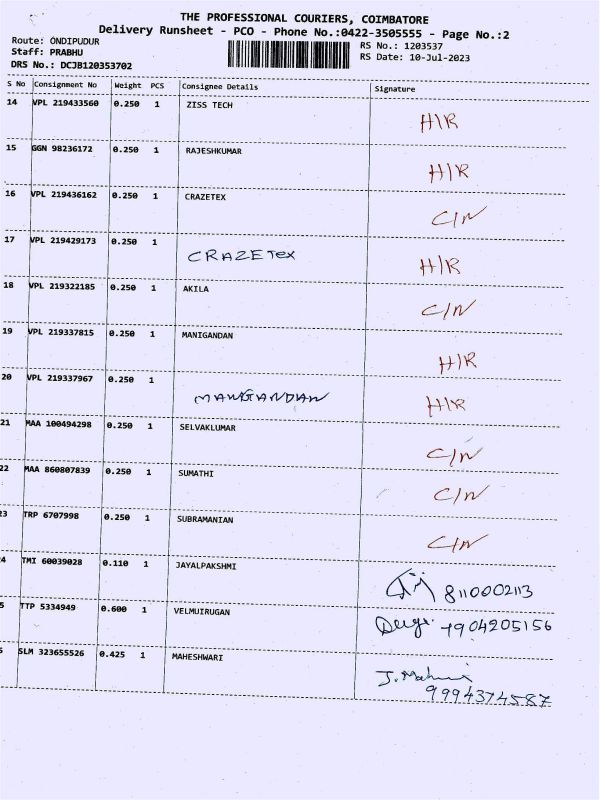 THE PROFESSIONAL COURIERS, COIMBATORE
Delivery Runsheet - PCO - Phone No.:0422-3505555 - Page No.:2
Route: ONDIPUDUR
RS No.: 1203537
Staff: PRABHU
RS Date: 10-Jul-2023
DRS No.: DCJB120353702
S No Consignment No Weight PCS Consignee Details Signature
14 VPL 219433560 0.250 1 ZISS TECH H/R
15 GGN 98236172 0.250 1 RAJESHKUMAR H/R
16 VPL 219436162 0.250 1 CRAZETEX C/N
17 VPL 219429173 0.250 1 CRAZETex H/R
18 VPL 219322185 0.250 1 AKILA C/N
19 VPL 219337815 0.250 1 MANIGANDAN H/R
20 VPL 219337967 0.250 1 MANIGANDAN H/R
21 MAA 100494298 0.250 1 SELVAKLUMAR C/N
22 MAA 860807839 0.250 1 SUMATHI C/N
23 TRP 6707998 0.250 1 SUBRAMANIAN C/N
4 TMI 60039028 0.110 1 JAYALPAKSHMI 8110002113
5 TTP 5334949 0.600 1 VELMUIRUGAN 7904205156
SLM 323655526 0.425 1 MAHESHWARI J. 
9994374587